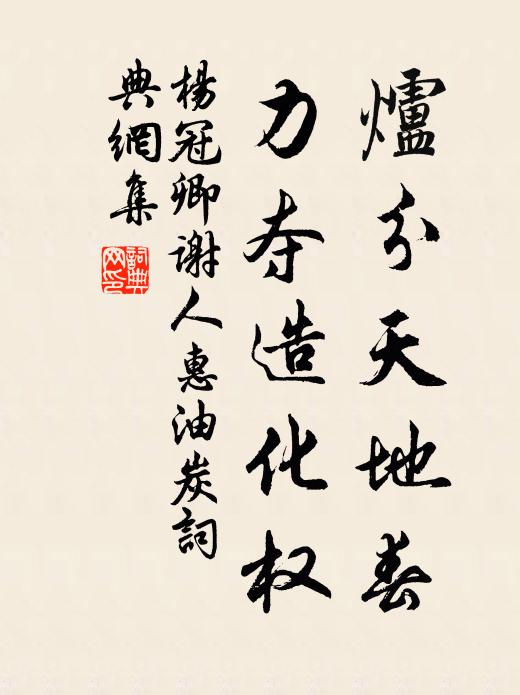 爐分天地春
力夺造化权
楊冠卿謝人惠油炭詞
典網集
詞典
网印